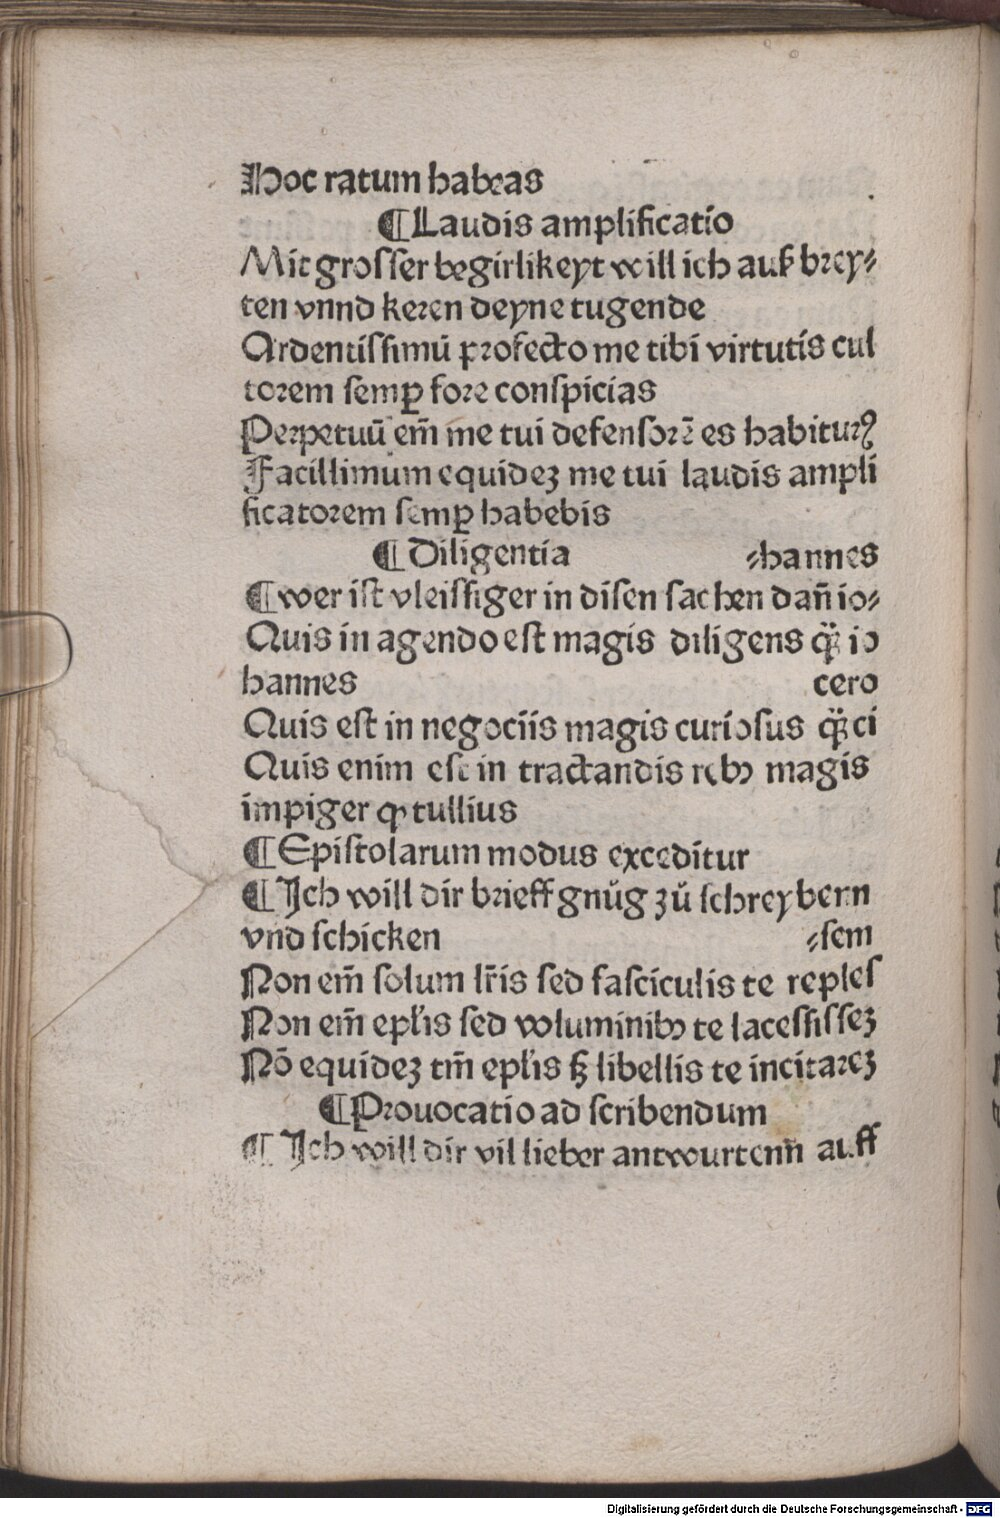 Hoc ratum habeas
¶Laudis amplificatio
Mit grosser begirlikeyt will ich auß brey⸗
ten vnnd keren deyne tugende
Ardentissimū profecto me tibi virtutis cul
torem semꝑ fore conspicias
Perpetuū em̄ me tui defensorē es habiturꝰ
Facillimum equidez me tui laudis ampli
ficatorem semꝑ habebis
¶Diligentia ⸗hannes
¶wer ist vleissiger in disen sachen dan̄ io⸗
Quis in agendo est magis diligens qͣ̈ȝ io
hannes cero
Quis est in negociis magis curiosus qͣ̈ȝ ci
Quis enim est in tractandis rebꝰ magis
impiger qͣȝ tullius
¶Epistolarum modus exceditur
¶Ich will dir brieff gnůg zů schreybern
vnd schicken ⸗sem
Non em̄ solum lr̄is sed fasciculis te reples
Non em̄ epl̄is sed voluminibꝰ te lacessissez
Nō equidez tm̄ epl̄is sꝫ libellis te incitarez
¶Prouocatio ad scribendum
¶Ich will dir vil lieber antwurtenn̄ auff
Digitalisierung gefördert durch die Deutsche Forschungsgemeinschaft - DFG